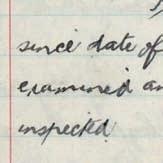 since date of
examined an
inspected